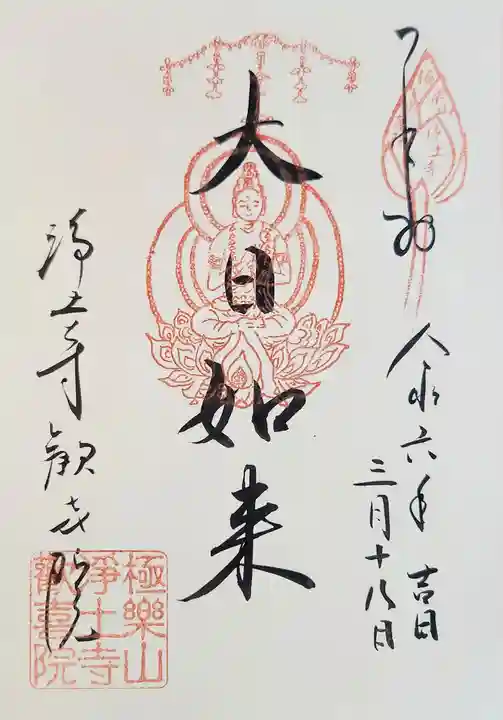 奉拝
令和六年 吉日
三月十八日
大日如来
浄土寺歓喜院
極樂山
淨土寺
歡喜院